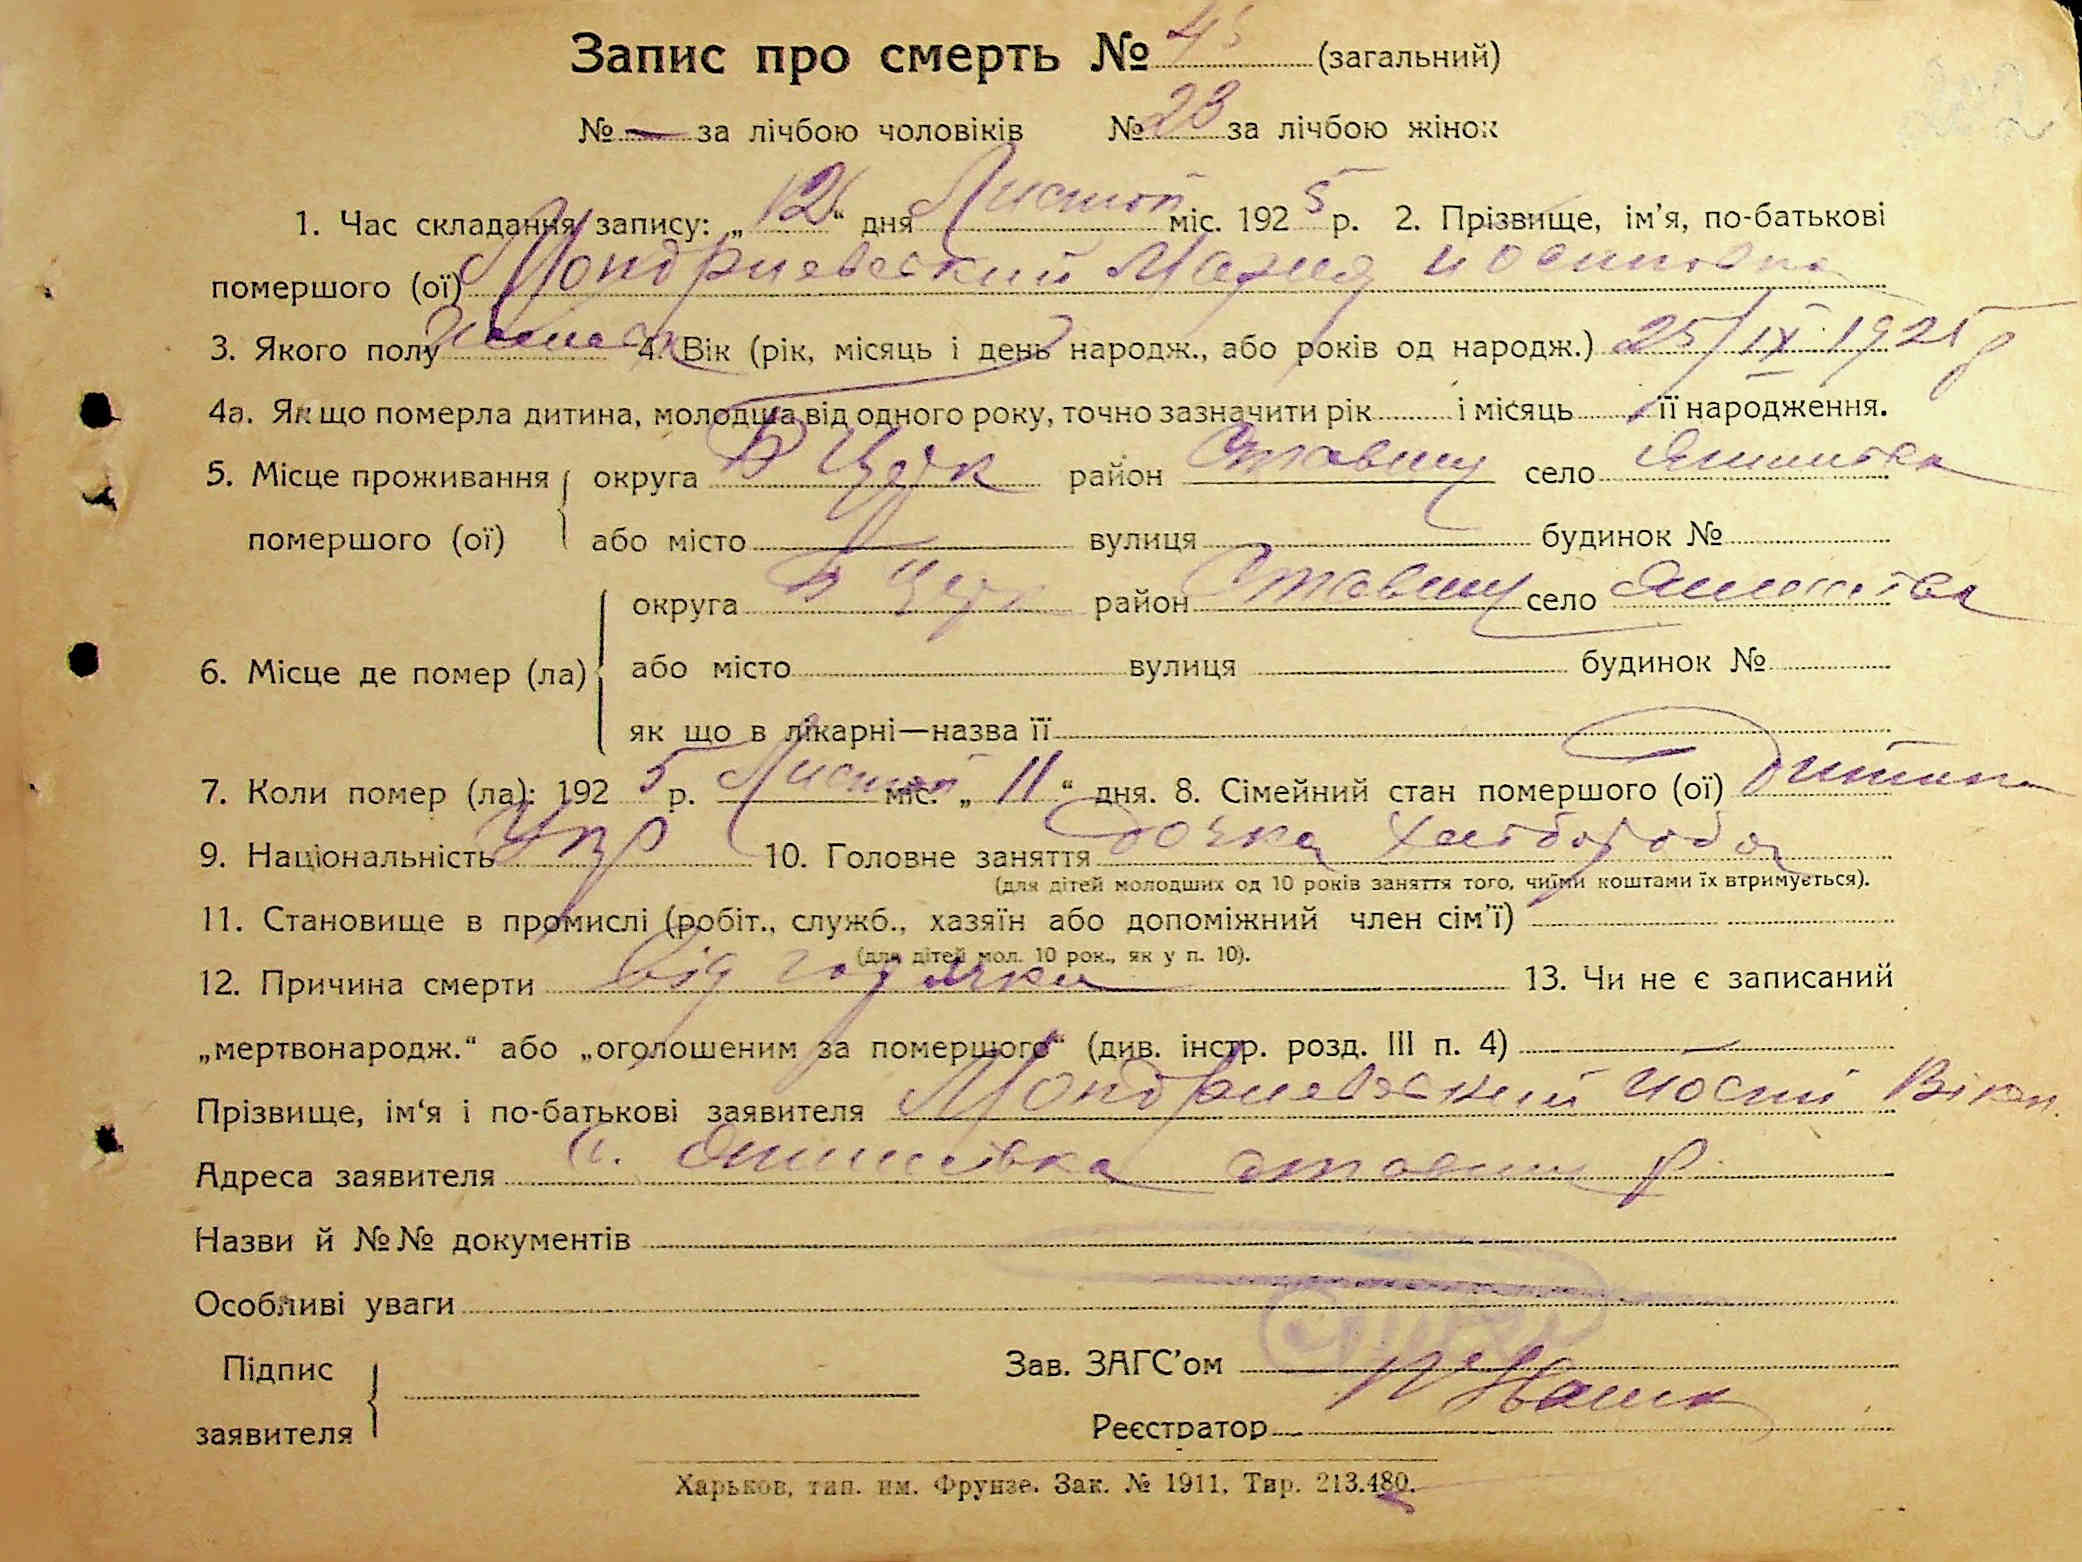 Запис про смерть № 45 (загальний)
№ — за лічбою чоловіків № 23 за лічбою жінок
1. Час складання запису: „12“ дня Листоп міс. 1925 р. 2. Прізвище, ім'я, по-батькові
помершого (ої) Мондриевський Мария иосиповна
3. Якого полу 4. Вік (рік, місяць і день народж., або років од народж.) 25/IX 1925 р
4а. Як що померла дитина, молодша від одного року, точно зазначити рік і місяць її народження.
5. Місце проживання округа Б Церк район Ставищ село Янишівка
помершого (ої) або місто вулиця будинок №
округа Б Церк район Ставищ село Янишівка
6. Місце де помер (ла) або місто вулиця будинок №
як що в лікарні—назва її
7. Коли помер (ла): 1925 р. Листоп міс. „11“ дня. 8. Сімейний стан помершого (ої) Дитина
9. Національність Укр 10. Головне заняття дочка хлібороба
(для дітей молодших од 10 років заняття того, чиїми коштами їх втримується).
11. Становище в промислі (робіт., служб., хазяїн або допоміжний член сім'ї)
(для дітей мол. 10 рок., як у п. 10).
12. Причина смерти від горячки 13. Чи не є записаний
„мертвонародж.“ або „оголошеним за помершого“ (див. інстр. розд. III п. 4) —
Прізвище, ім'я і по-батькові заявителя Мондриевський Иосип Вікт.
Адреса заявителя с. Янишівка Ставищ р
Назви й №№ документів
Особливі уваги
Підпис Зав. ЗАГС'ом
заявителя Реєстратор
Харьков, тип. им. Фрунзе. Зак. № 1911. Тир. 213.480.